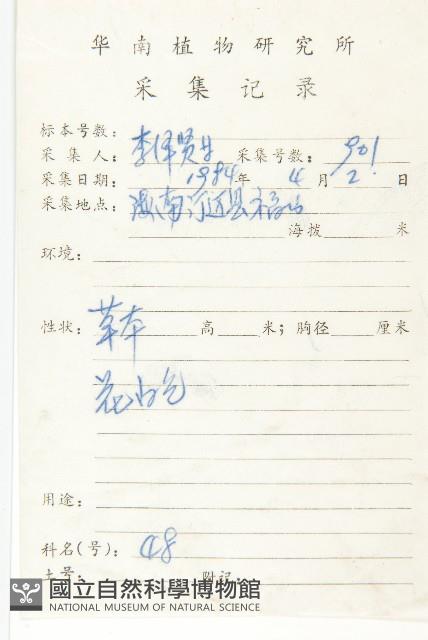 华南植物研究所
采集记录
标本号数：
采集人：李泽贤等 采集号数：901
采集日期：1984年4月2日
采集地点：海南
海拔 米
环境：
性状：草本 高 米；胸径 厘米
花白色
用途：
科名(号)：48
土名： 附记
國立自然科學博物館
NATIONAL MUSEUM OF NATURAL SCIENCE